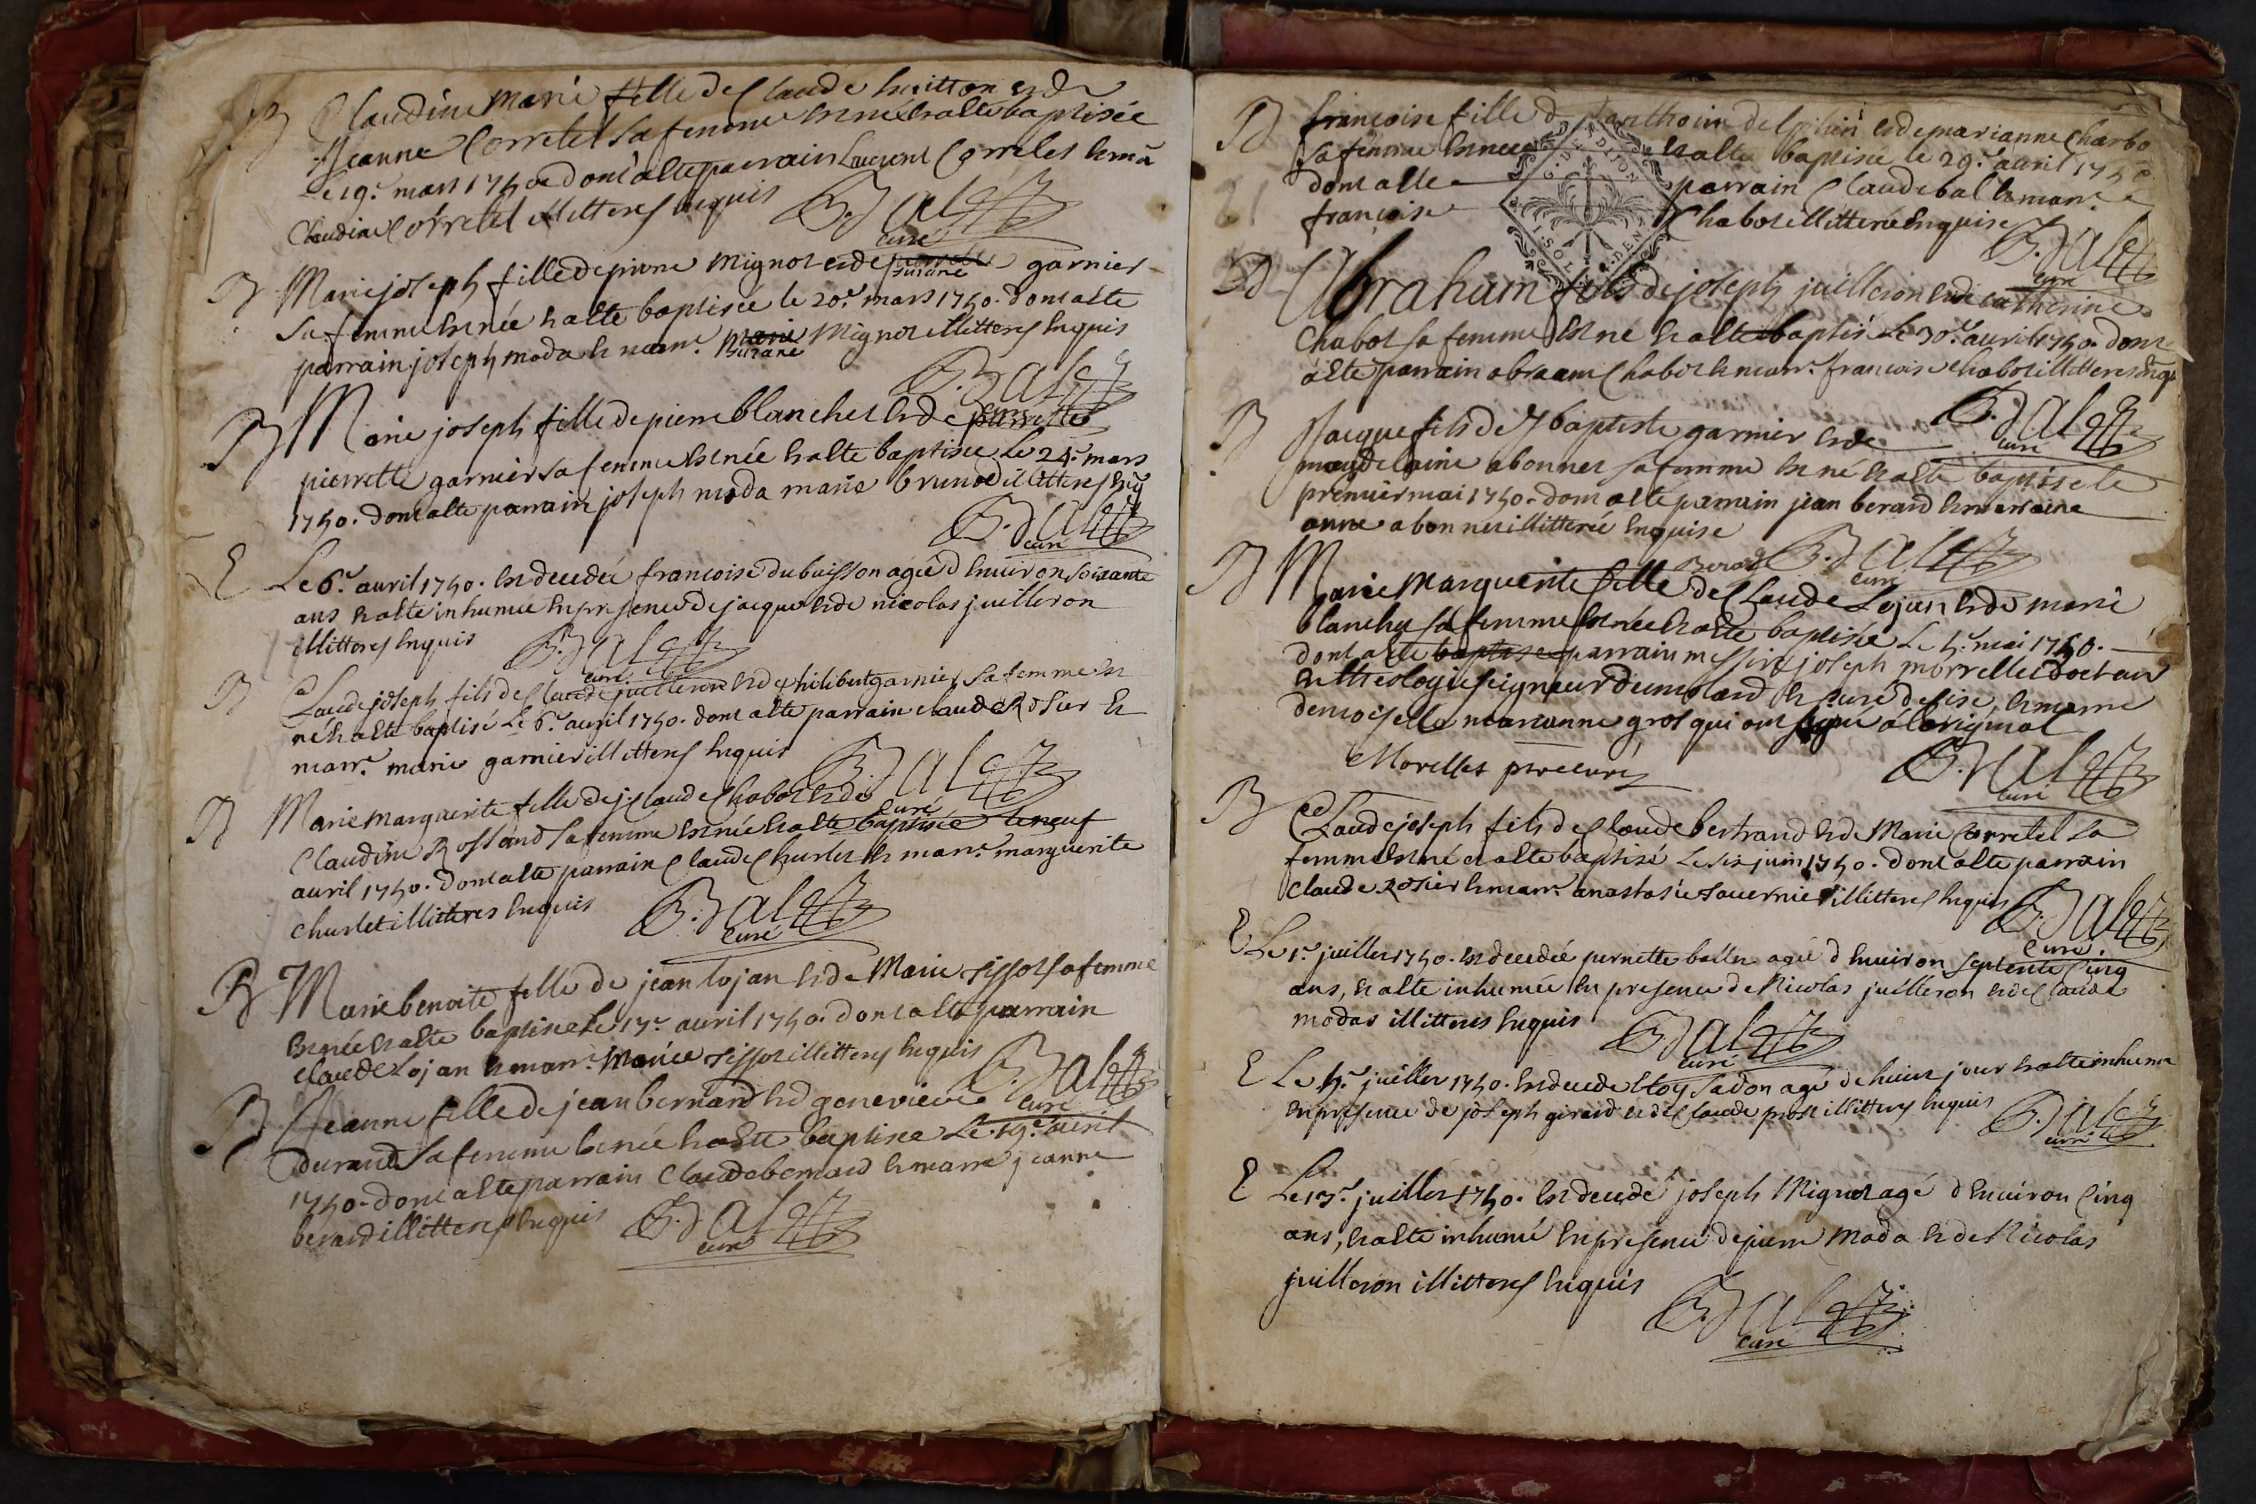 B Claudine Marie fille de Claude huitton et de
Jeanne Corretel sa femme est née et a été baptisée
Le 19.e mars 1750 dont a été parrain Laurent Correlet et ma
Claudine Corretel illitteres enquis B. Balet
curé
B Marie joseph fille de pierre Mignot et de garnier
suzane
sa femme est née et a été baptisée le 20.e mars 1750. dont a été
parrain joseph moda et marr.e Mignot illitteres enquis
suzane
B. Balet
B Marie joseph fille de pierre blanchet et de pierrette
pierrette garnier sa femme est née et a été baptisée Le 24.e mars
1750. dont a été parrain joseph moda marie brunod illitteres enq
B. Balet
curé
E Le 6.e avril 1750. est decedée francoise dubuisson agée d'environ soixante
ans et a été inhumée en presence de jacque et de nicolas juilleron
illitteres enquis B. Balet
curé
B Claude joseph fils de Claude juilleron et de philiberte garnier sa femme est
né et a été baptisé Le 6.e avril 1750. dont a été parrain claude Rosier et
marr.e marie garnier illitteres enquis B. Balet
curé
B Marie marguerite fille de j Claude Chabot et de
Claudine Rossand sa femme est née et a été baptisée le neuf
avril 1750. dont a été parrain Claude Churlet et marr.e marguerite
churlet illitteres enquis B. Balet
curé
B Marie benoite fille de jean lojan et de Marie sissot sa femme
est née et a été baptisée Le 17.e avril 1750. dont a été parrain
claude Lojan et marr.e Marie sissot illitteres enquis B. Balet
curé
B Jeanne fille de jean bernard et d genevieve
durand sa femme est née et a été baptisée Le 19.e avril
1750. dont a été parrain Claude bernard et marre jeanne
berard illitteres enquis B. Balet
curé
B francoise fille d et de marianne Charbo
sa femme est née et a été baptisée le 29.e avril 1750
dont a été parrain Claude bal et marr.e
francoise Chabot illitterée enquise
B. Balet
curé
G. D. DIJON
B Abraham fils de joseph juilleron et de catherine
Chabot sa femme est né et a été baptisé Le 30.e avril 1750. dont
a été parrain abraam Chabot et marr.e francoise chabot illitteres enqu
B. Balet
curé
B Jacque fils de J baptiste garnier et de
magdelaine abonnet sa femme est né et a été baptisé le
premier mai 1750. dont a été parrain jean berard et marraine
anne abonnet illitterée enquise
Berard B. Balet
curé
B Marie Marguerite fille de Claude Lojan et de marie
blanchet sa femme est née et a été baptisée Le 5.e mai 1750.
dont a été baptisée parrain messire joseph morrellet docteur
en theologie seigneur dumolard et curé de lise, et marre
demoiselle marianne gros qui ont signé a l'original
Morellet pr curé B. Balet
curé
B Claude joseph fils de Claude bertrand et de Marie Corretel sa
femme est né et a été baptisé Le six juin 1750. dont a été parrain
Claude Rosier et marr.e anastasie tavernier illitteres enquis
B. Balet
curé
E Le 1.r juillet 1750. est decedée pernette ballet agée d'environ septente cinq
ans, et a été inhumée en presence de Nicolas juilleron et de Claude
modas illitteres enquis B. Balet
curé
E Le 5.e juillet 1750. est decedé Eloy Sadon agé de huit jour et a été inhumé
en presence de joseph girard et de Claude prost illitteres enquis
B. Balet
curé
E Le 13.e juillet 1750. est decedé joseph Mignot agé d'environ Cinq
ans, et a été inhumé en presence de pierre moda et de Nicolas
juilleron illitteres enquis
B. Balet
curé